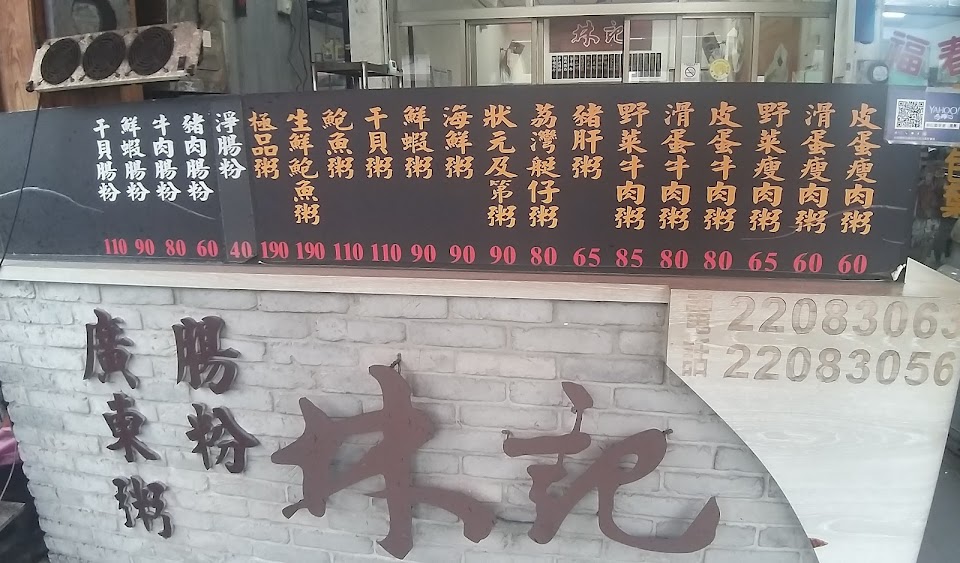 林記
福春
YAHOO!
皮蛋瘦肉粥 60
滑蛋瘦肉粥 60
野菜瘦肉粥 65
皮蛋牛肉粥 80
滑蛋牛肉粥 80
野菜牛肉粥 85
豬肝粥 65
荔灣艇仔粥 80
狀元及第粥 90
海鮮粥 90
鮮蝦粥 90
干貝粥 110
鮑魚粥 110
生鮮鮑魚粥 190
極品粥 190
淨腸粉 40
豬肉腸粉 60
牛肉腸粉 80
鮮蝦腸粉 90
干貝腸粉 110
電話
22083063
22083056
腸粉
廣東粥
林記